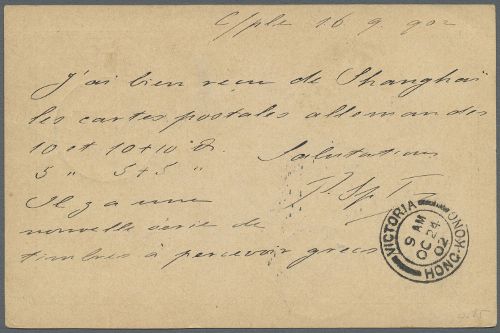 C/ple 16. 9. 902
J'ai bien reçu de Shanghaï
les cartes postales allemandes
10 et 10+10 &.
5 " 5+5 "
Salutations
Il y a une
nouvelle serie de
timbres à percevoir grecs
VICTORIA HONG-KONG
9 AM
OC 24
02